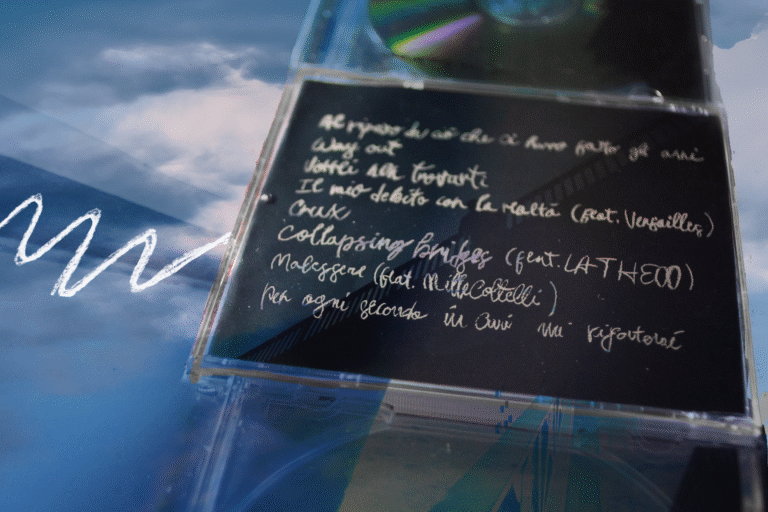 Al riparo da ciò che ci hanno fatto gli anni
Way out
Vorrei non trovarti
Il mio debito con la realtà (feat. Versailles)
Crux
Collapsing Bridges (feat. LATHEO)
Malessere (feat. MilleColtelli)
Per ogni secondo in cui mi riporterai